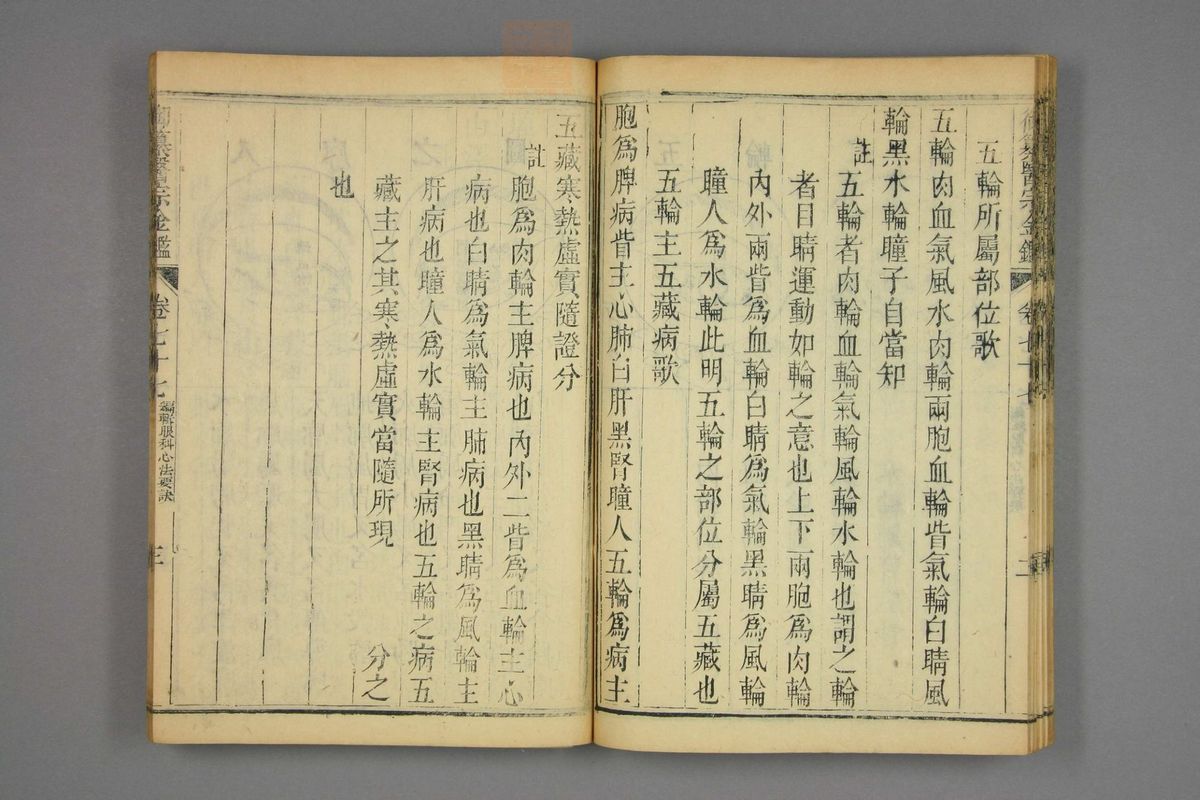 五輪所屬部位歌
五輪肉血氣風水肉輪兩胞血輪眥氣輪白睛風
輪黑水輪瞳子自當知
註
五輪者肉輪血輪氣輪風輪水輪也謂之輪
者目睛運動如輪之意也上下兩胞爲肉輪
內外兩眥爲血輪白睛爲氣輪黑睛爲風輪
瞳人爲水輪此明五輪之部位分屬五藏也
五輪主五藏病歌
胞爲脾病眥主心肺白肝黑腎瞳人五輪爲病主
五藏寒熱虛實隨證分
註
胞爲肉輪主脾病也內外二眥爲血輪主心
病也白睛爲氣輪主肺病也黑睛爲風輪主
肝病也瞳人爲水輪主腎病也五輪之病五
藏主之其寒熱虛實當隨所現
分之
也
御纂醫宗金鑑
卷七十七
編輯眼科心法要訣
三
御纂醫宗金鑑
卷七十七
二